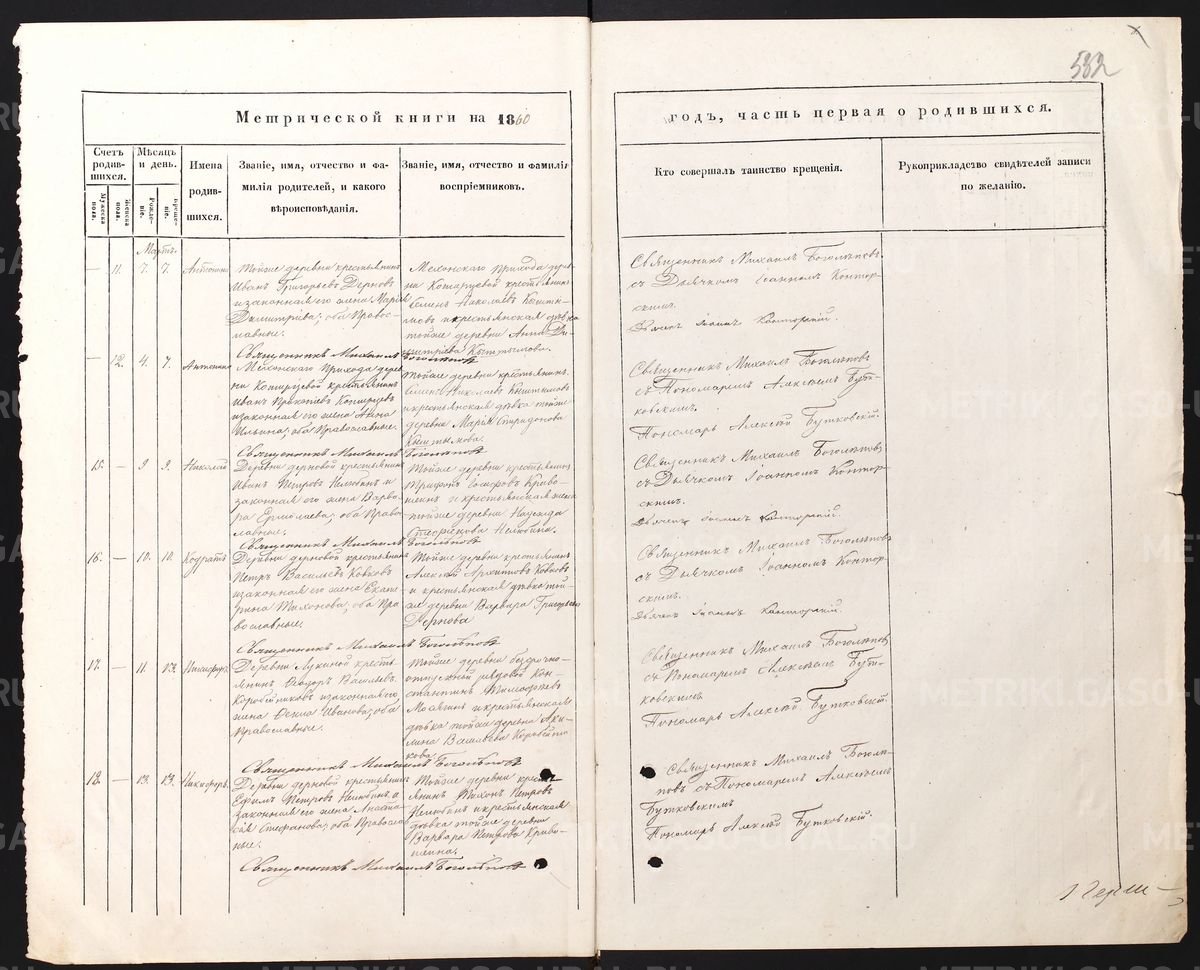 582
Метрической книги на 1860
годъ, часть первая о родившихся.
Счетъ родив-
шихся.
Мужеска пола.
Женска пола.
Мѣсяцъ и день.
Рожде-
ніе.
Креще-
ніе.
Имена
родив-
шихся.
Званіе, имя, отчество и фа-
милія родителей, и какого
вѣроисповѣданія.
Званіе, имя, отчество и фамилія
воспріемниковъ.
Кто совершалъ таинство крещенія.
Рукоприкладство свидѣтелей записи
по желанію.
Мартъ
— 11. 7. 7. Антонина
Тойже деревни крестьянинъ
Иванъ Григорьевъ Дерновъ
и законная его жена Марія
Димитріева; оба Правос-
лавные.
Мехонскаго Прихода дерев-
ни крестьянинъ
Семенъ Николаевъ
и крестьянская дѣвка
тойже деревни Анна Ди-
митріева
Священникъ Михаилъ Боголѣповъ
съ Дьячкомъ Іоанномъ Контор-
скимъ.
Дьячекъ Іоаннъ Конторскій.
Священникъ Михаилъ Боголѣповъ
— 12. 4. 7. Антонина
Мехонскаго Прихода дерев-
ни крестьянинъ
Иванъ
и законная его жена Анна
Ильина; оба Православные.
Тойже деревни крестьянинъ
Семенъ Николаевъ
и крестьянская дѣвка тойже
деревни Марія Спиридонова
Священникъ Михаилъ Боголѣповъ
съ Пономаремъ Алексѣемъ Бут-
ковскимъ.
Пономарь Алексѣй Бутковскій.
Священникъ Михаилъ Боголѣповъ
15. — 9 9. Николай
Деревни Дерновой крестьянинъ
Иванъ Петровъ Нелюбинъ и
законная его жена Варва-
ра Ермолаева; оба Правос-
лавные.
Тойже деревни крестьянинъ
Трифонъ
и крестьянская жена
тойже деревни Надежда
Стефанова Нелюбина.
Священникъ Михаилъ Боголѣповъ
съ Дьячкомъ Іоанномъ Контор-
скимъ.
Дьячекъ Іоаннъ Конторскій.
Священникъ Михаилъ Боголѣповъ
16. — 10. 10. Кодратъ
Деревни Дерновой крестьянинъ
Петръ Васильевъ Ковковъ
и законная его жена Екате-
рина Тихонова; оба Пра-
вославные.
Тойже деревни крестьянинъ
Алексѣй Архиповъ Ковковъ
и крестьянская дѣвка той-
же деревни Варвара Григорьева
Дернова
Священникъ Михаилъ Боголѣповъ
съ Дьячкомъ Іоанномъ Контор-
скимъ.
Дьячекъ Іоаннъ Конторскій.
Священникъ Михаилъ Боголѣповъ
17. — 11. 13. Никифоръ
Деревни Лукиной кресть-
янинъ Ѳедоръ Васильевъ
Коробейниковъ и законная его
жена Ѳекла Иванова; оба
Православные.
Тойже деревни безсрочно-
отпускной рядовой Кон-
стантинъ Тимофѣевъ
и крестьянская
дѣвка тойже деревни Аку-
лина Васильева Коробейни-
кова
Священникъ Михаилъ Боголѣповъ
съ Пономаремъ Алексѣемъ Бут-
ковскимъ.
Пономарь Алексѣй Бутковскій.
Священникъ Михаилъ Боголѣповъ
18. — 13. 13. Никифоръ
Деревни Дерновой крестьянинъ
Ефимъ Петровъ Нелюбинъ и
законная его жена Анаста-
сія Стефанова; оба Православ-
ные.
Тойже деревни кресть-
янинъ Тихонъ Петровъ
Нелюбинъ и крестьянская
дѣвка тойже деревни
Варвара Петрова
Священникъ Михаилъ Боголѣ-
повъ съ Пономаремъ Алексѣемъ
Бутковскимъ
Пономарь Алексѣй Бутковскій.
Священникъ Михаилъ Боголѣповъ